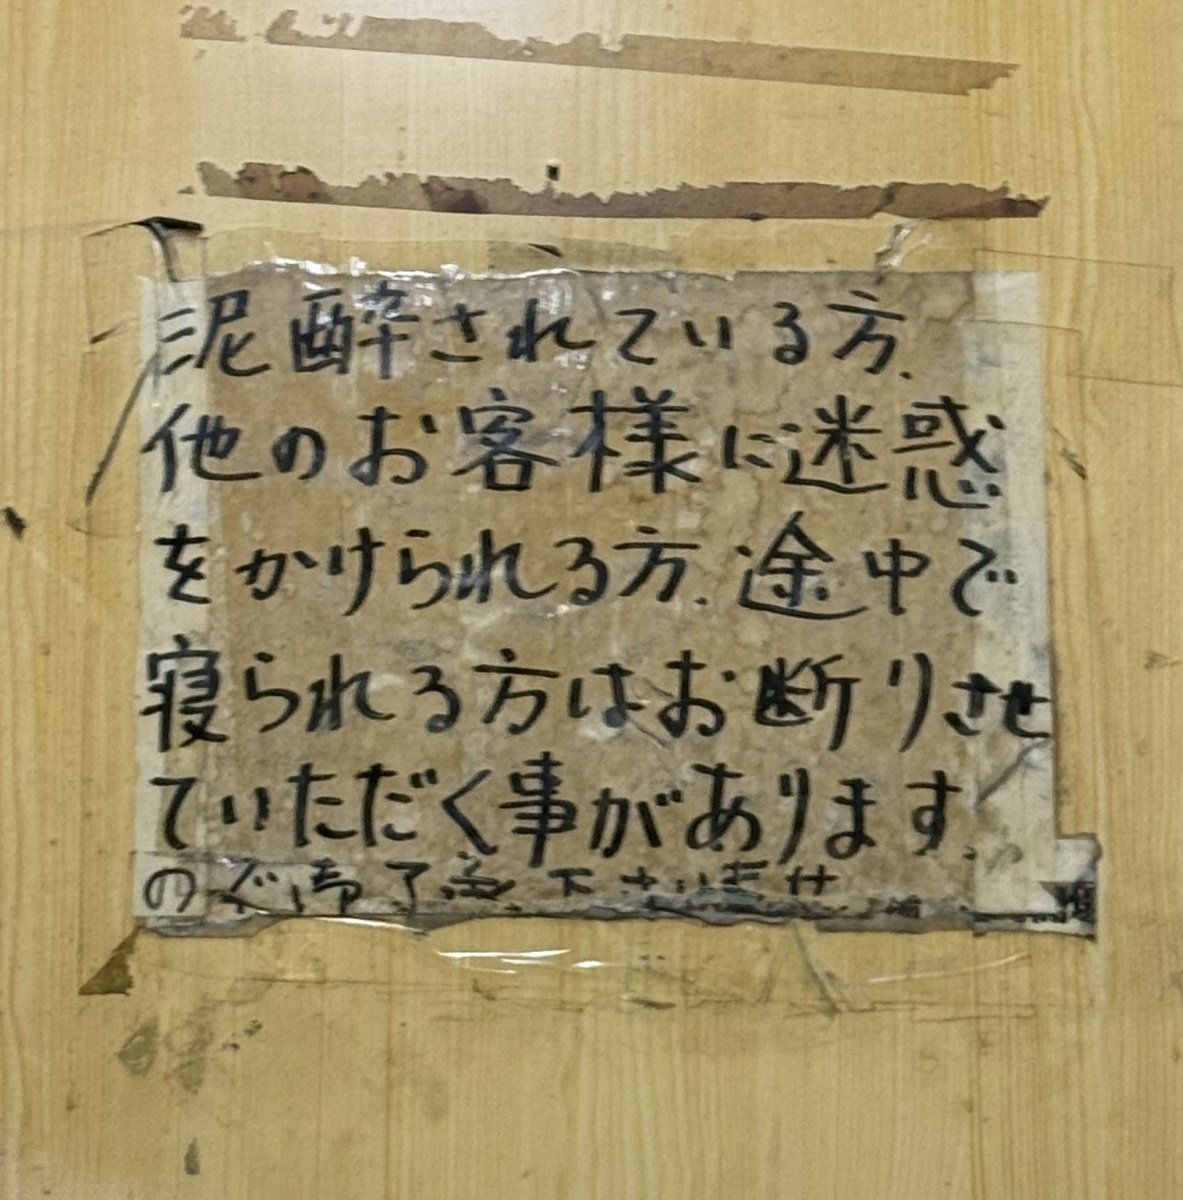 泥酔されている方.
他のお客様に迷惑
をかけられる方.途中で
寝られる方はお断りさせ
ていただく事があります.
ので御了承下さいませ